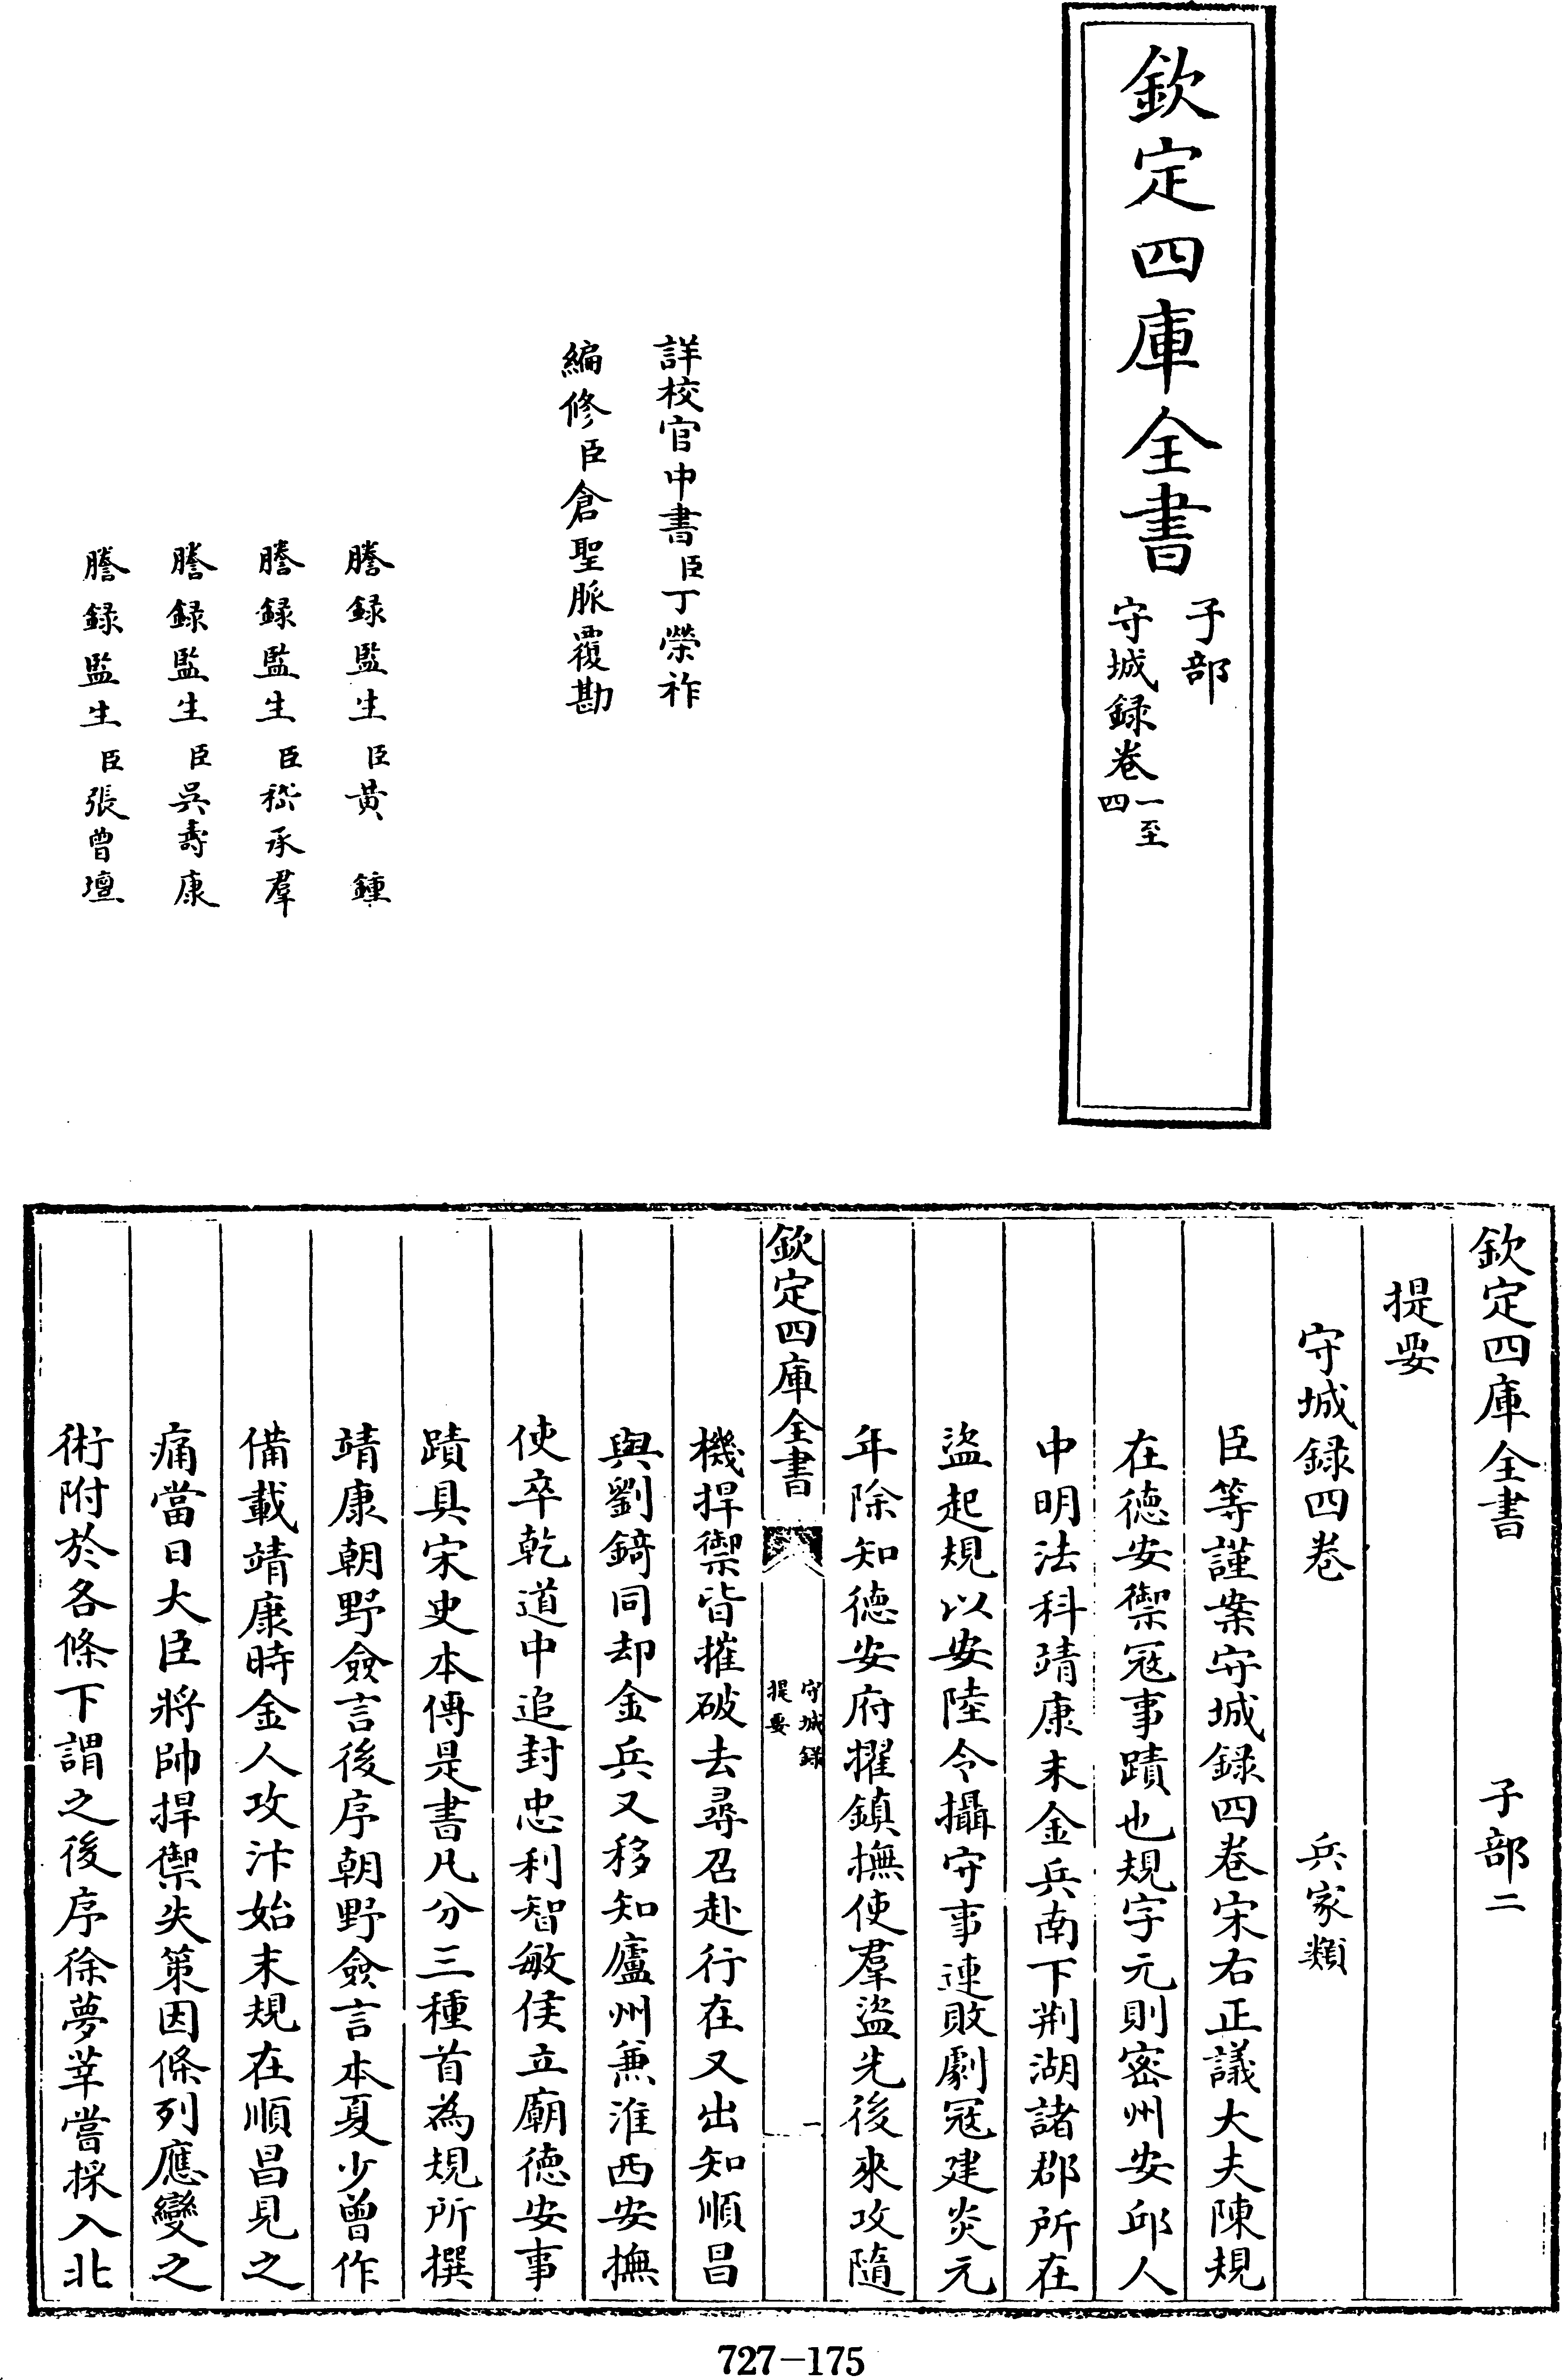 欽定四庫全書
子部
守城録卷一至四
詳校官中書臣丁榮祚
編修臣倉聖脈覆勘
謄録監生臣黃鍾
謄録監生臣嵇承羣
謄録監生臣吳壽康
謄録監生臣張曾壇
欽定四庫全書 子部二
提要
守城録四卷 兵家類
臣等謹案守城録四卷宋右正議大夫陳規
在徳安禦冦事蹟也規字元則密州安邱人
中明法科靖康末金兵南下荆湖諸郡所在
盜起規以安陸令攝守事連敗劇冦建炎元
年除知徳安府擢鎮撫使羣盜先後來攻隨
欽定四庫全書
守城録
提要
一
機捍禦皆摧破去尋召赴行在又出知順昌
與劉錡同却金兵又移知廬州兼淮西安撫
使卒乾道中追封忠利智敏侯立廟徳安事
蹟具宋史本傳是書凡分三種首為規所撰
靖康朝野僉言後序朝野僉言本夏少曾作
備載靖康時金人攻汴始末規在順昌見之
痛當日大臣將帥捍禦失策因條列應變之
術附於各條下謂之後序徐夢莘嘗採入北
727-175